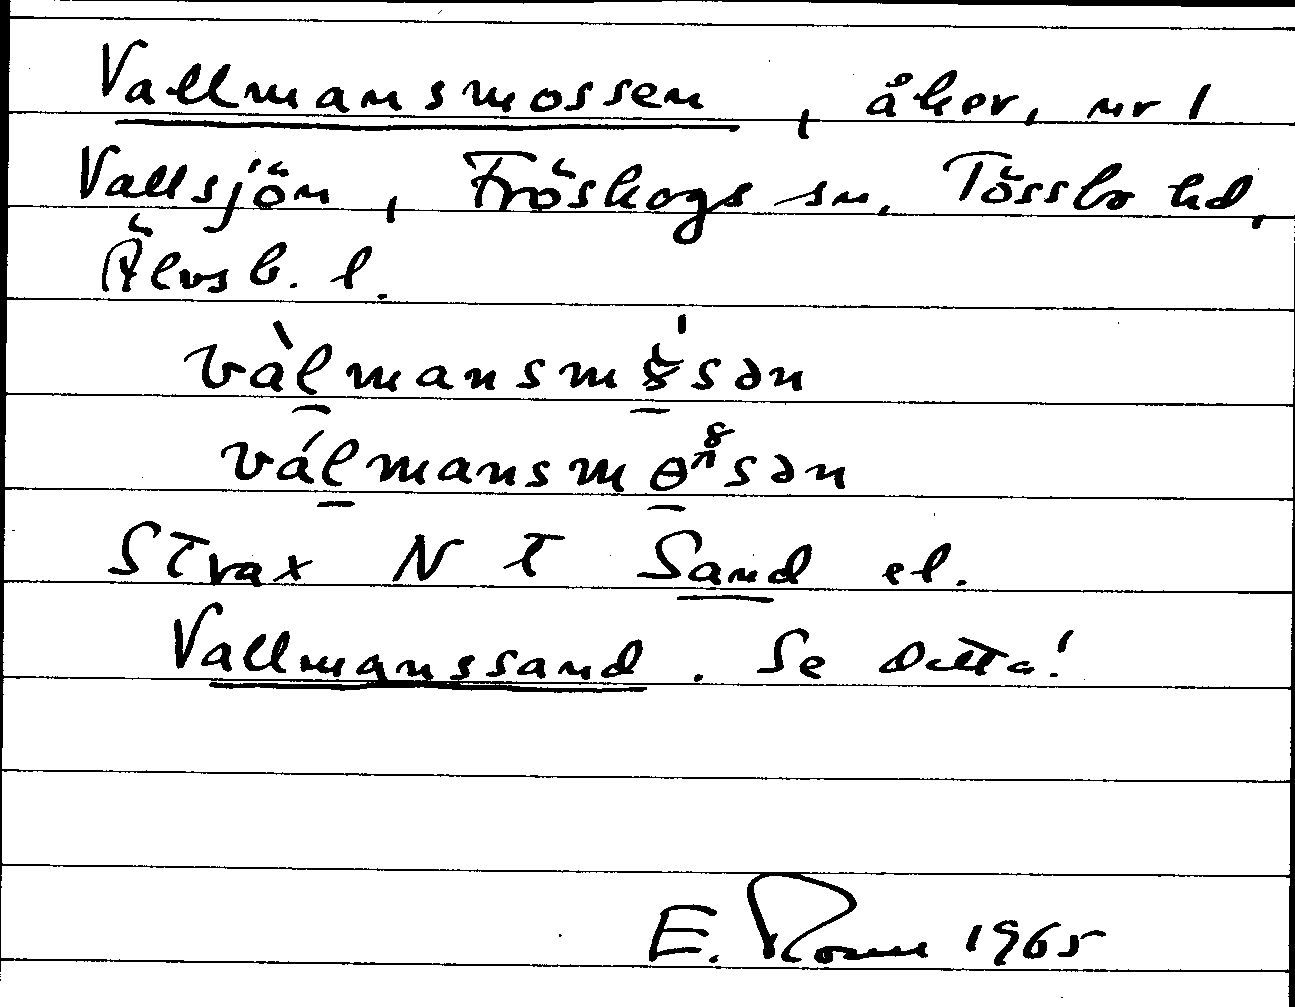 Vallmansmossen, åker, nr 1
Vallsjön, Fröskogs sn. Tössbo hd,
Älvsb. l.
vàlmansm sən
válmansmɵsən
Strax N t Sand el.
Vallmanssand. Se detta!
E. 1965